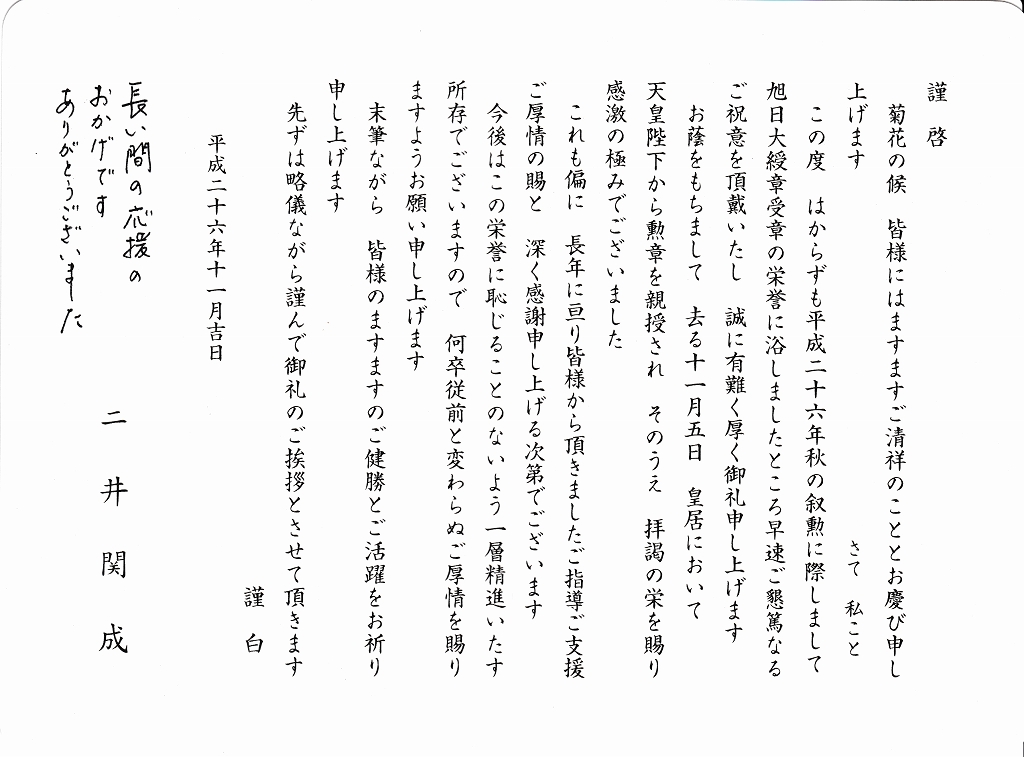 謹啓
菊花の候　皆様にはますますご清祥のこととお慶び申し
上げます　さて　私こと
この度　はからずも平成二十六年秋の叙勲に際しまして
旭日大綬章受章の栄誉に浴しましたところ早速ご懇篤なる
ご祝意を頂戴いたし　誠に有難く厚く御礼申し上げます
お蔭をもちまして　去る十一月五日　皇居において
天皇陛下から勲章を親授され　そのうえ　拝謁の栄を賜り
感激の極みでございました
これも偏に　長年に亘り皆様から頂きましたご指導ご支援
ご厚情の賜と　深く感謝申し上げる次第でございます
今後はこの栄誉に恥じることのないよう一層精進いたす
所存でございますので　何卒従前と変わらぬご厚情を賜り
ますようお願い申し上げます
末筆ながら　皆様のますますのご健勝とご活躍をお祈り
申し上げます
先ずは略儀ながら謹んで御礼のご挨拶とさせて頂きます
謹白
平成二十六年十一月吉日
二井関成
長い間の応援の
おかげです
ありがとうございました